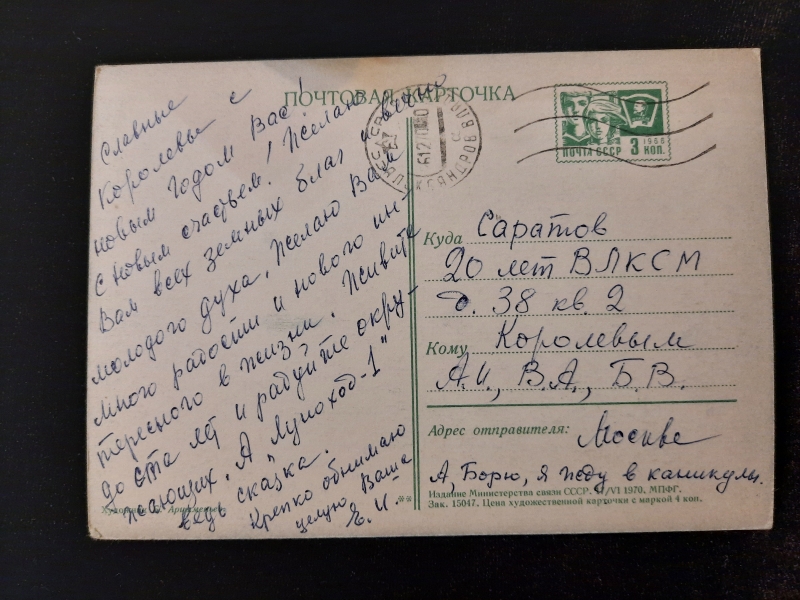 ПОЧТОВАЯ КАРТОЧКА
Славные
Королевы с
новым годом Вас!
С новым счастьем! Желаю
Вам всех земных благ и вечно
молодого духа. Желаю Вам
много радости и нового ин-
тересного в жизни. Живите
до ста лет и радуйте окру-
жающих. А "Луноход-1"
ведь сказка.
Крепко обнимаю
целую Ваша
Е. И.
ПОЧТА СССР
1966
3 КОП.
Куда Саратов
20 лет ВЛКСМ
д. 38 кв. 2
Кому Королевым
А.И., В.А., Б.В.
Адрес отправителя: Москва
А, Борю, я жду в каникулы.
Издание Министерства связи СССР. /VI 1970, МПФГ.
Зак. 15047. Цена художественной карточки с маркой 4 коп.